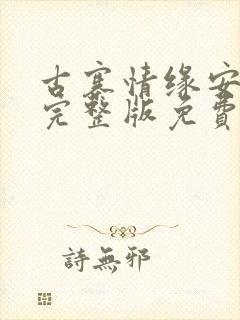 古寨情缘安
完整版免費
詩無邪